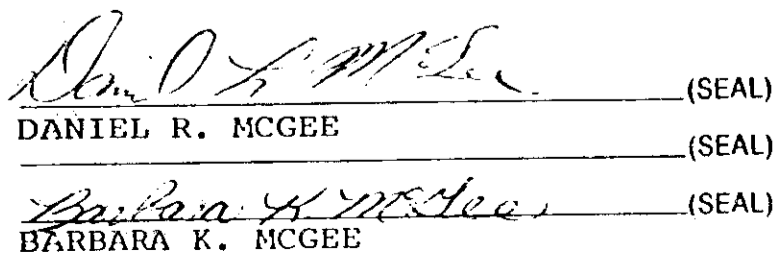 Daniel R McGee (SEAL)
DANIEL R. MCGEE
(SEAL)
Barbara K McGee (SEAL)
BARBARA K. MCGEE